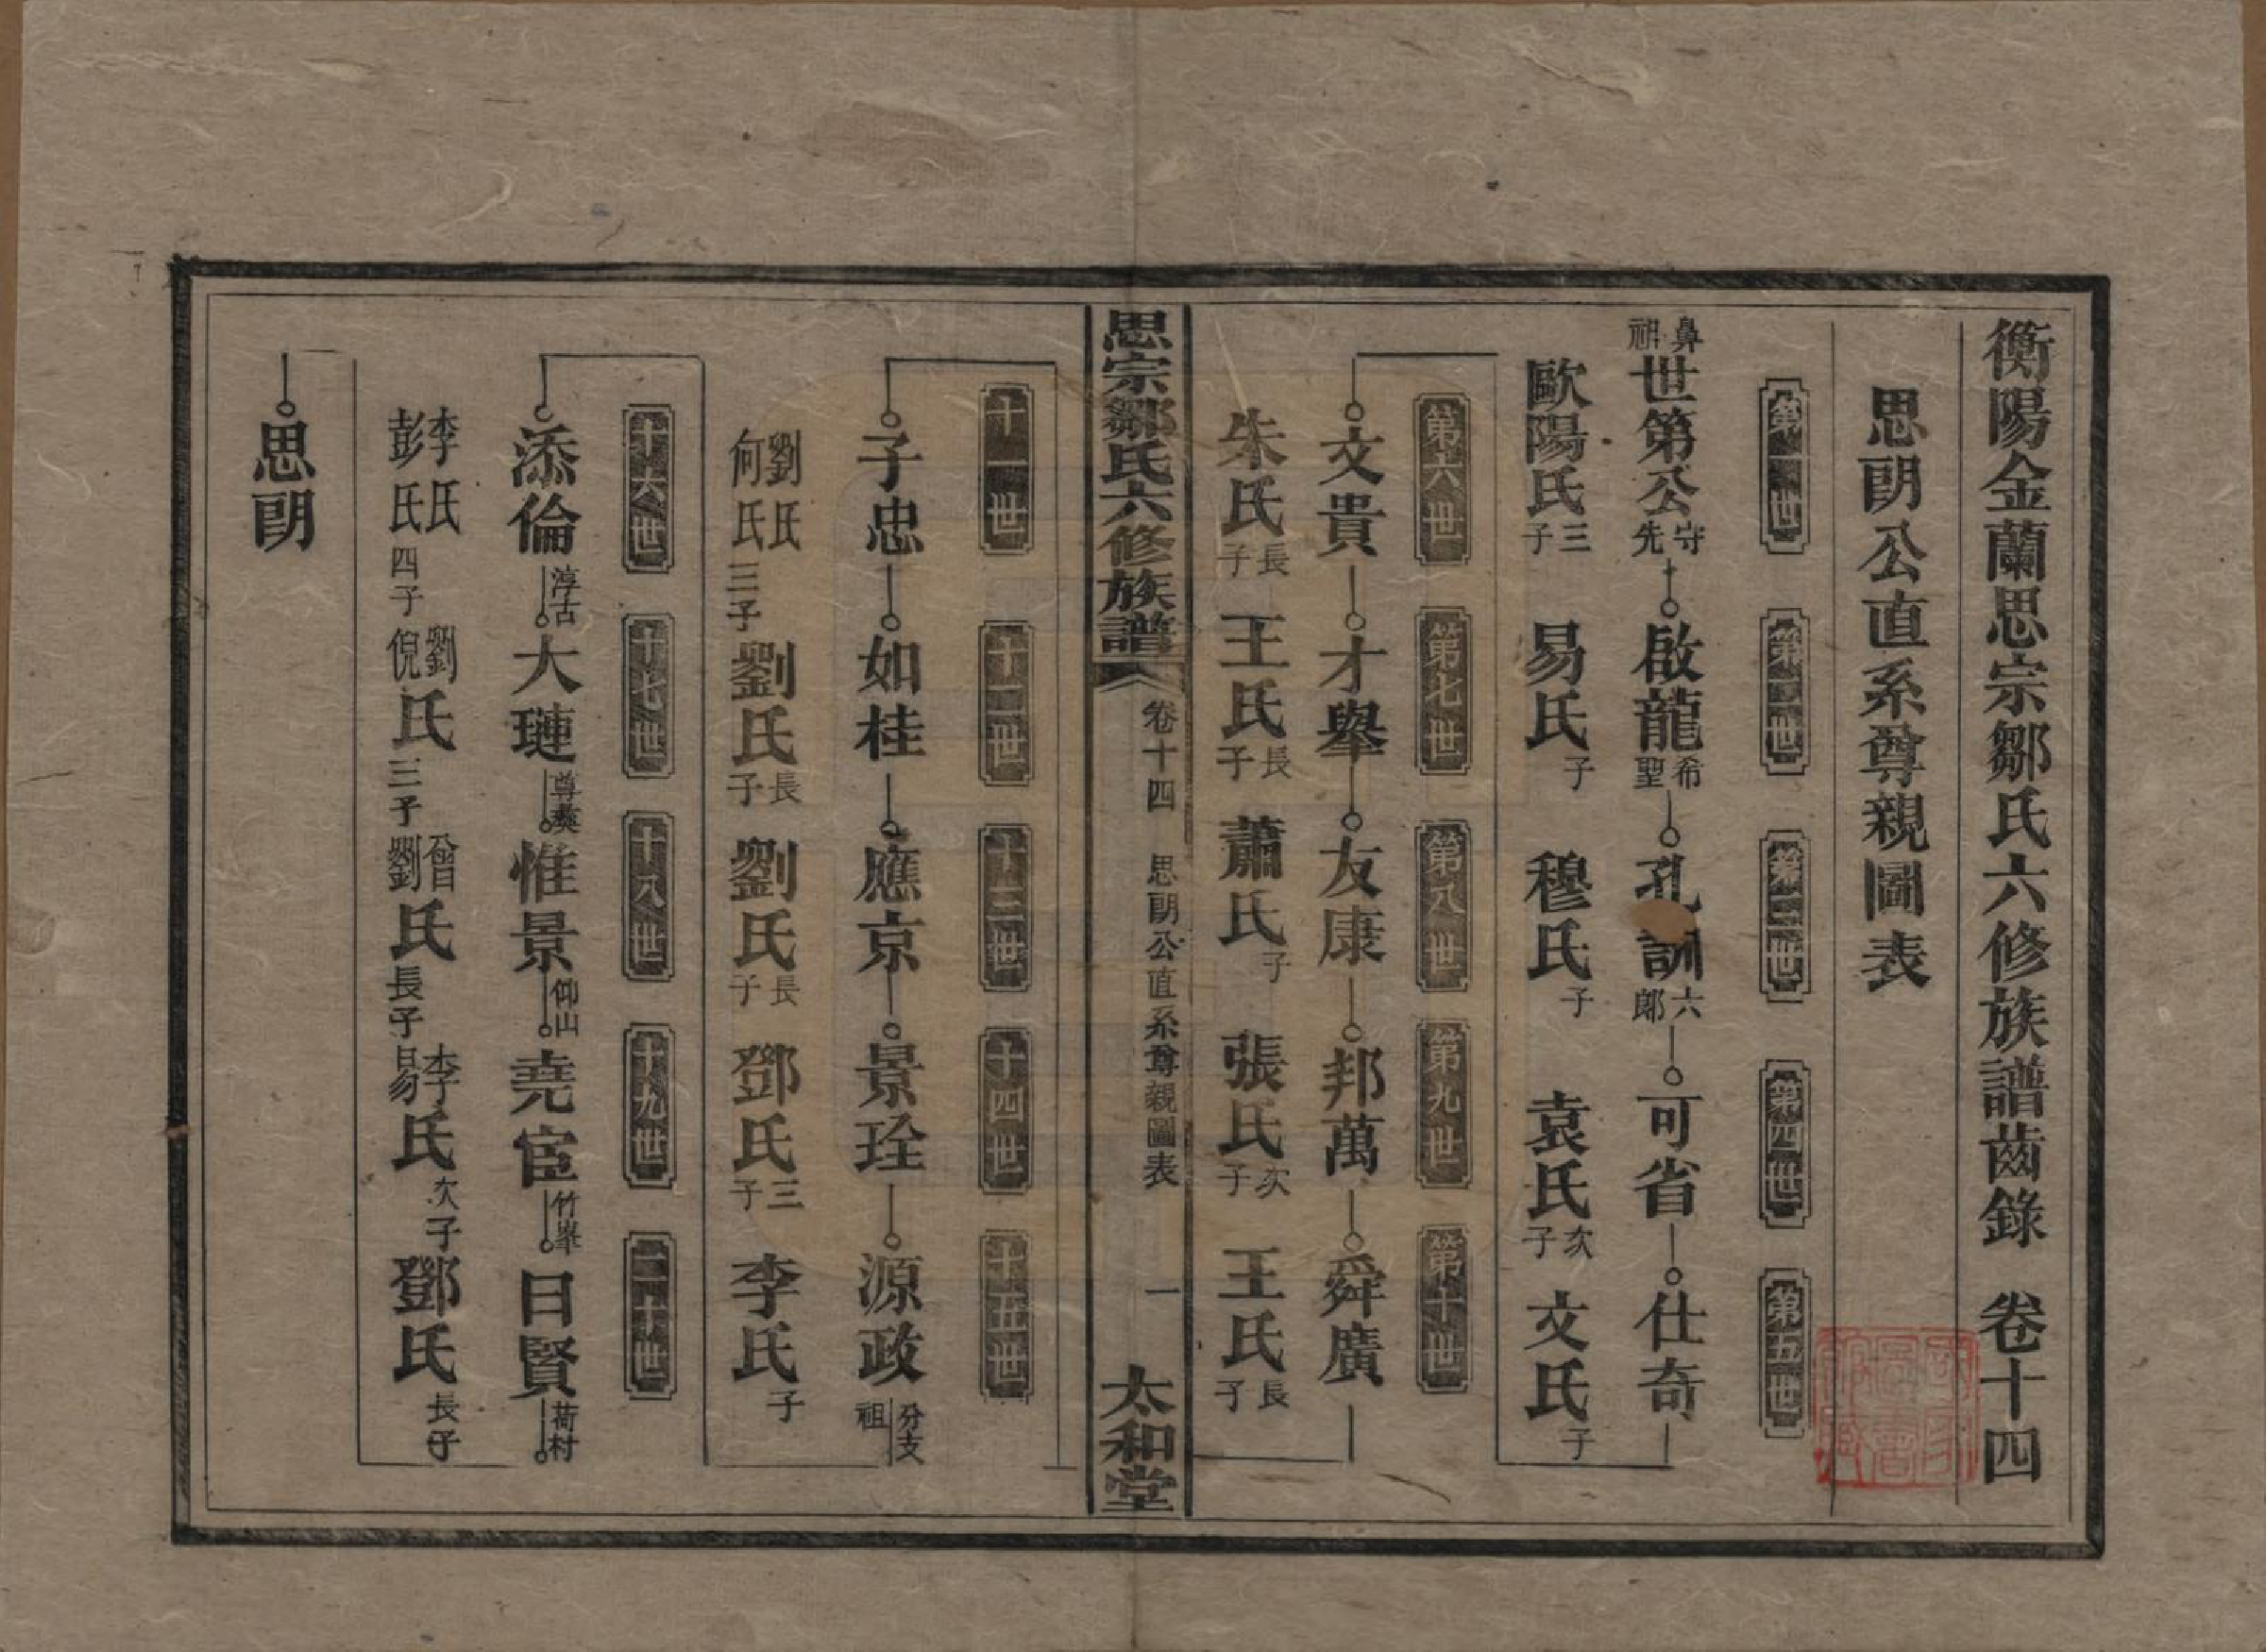 衡陽金蘭思宗鄒氏六修族譜齒錄 卷十四
思朗公直系尊親圖表
第一世 第二世 第三世 第四世 第五世
鼻祖 世第公 守先 啟龍 希聖 孔訓 六郎 可省 仕奇
歐陽氏 三子 易氏 子 穆氏 子 袁氏 次子 文氏 子
第六世 第七世 第八世 第九世 第十世
文貴 才舉 友康 邦萬 舜廣
朱氏 長子 王氏 長子 蕭氏 子 張氏 次子 王氏 長子
思宗鄒氏六修族譜 卷十四 思朗公直系尊親圖表 一 太和堂
十一世 十二世 十三世 十四世 十五世
子忠 如桂 應京 景珍 源政 分支祖
劉氏 何氏 三子 劉氏 長子 劉氏 長子 鄧氏 三子 李氏 子
十六世 十七世 十八世 十九世 二十世
添倫 淳古 大璉 尊彝 惟景 仰山 堯宦 竹峯 日賢 荷村
李氏 彭氏 四子 劉倪氏 三子 曾劉氏 長子 李易氏 次子 鄧氏 長子
思朗